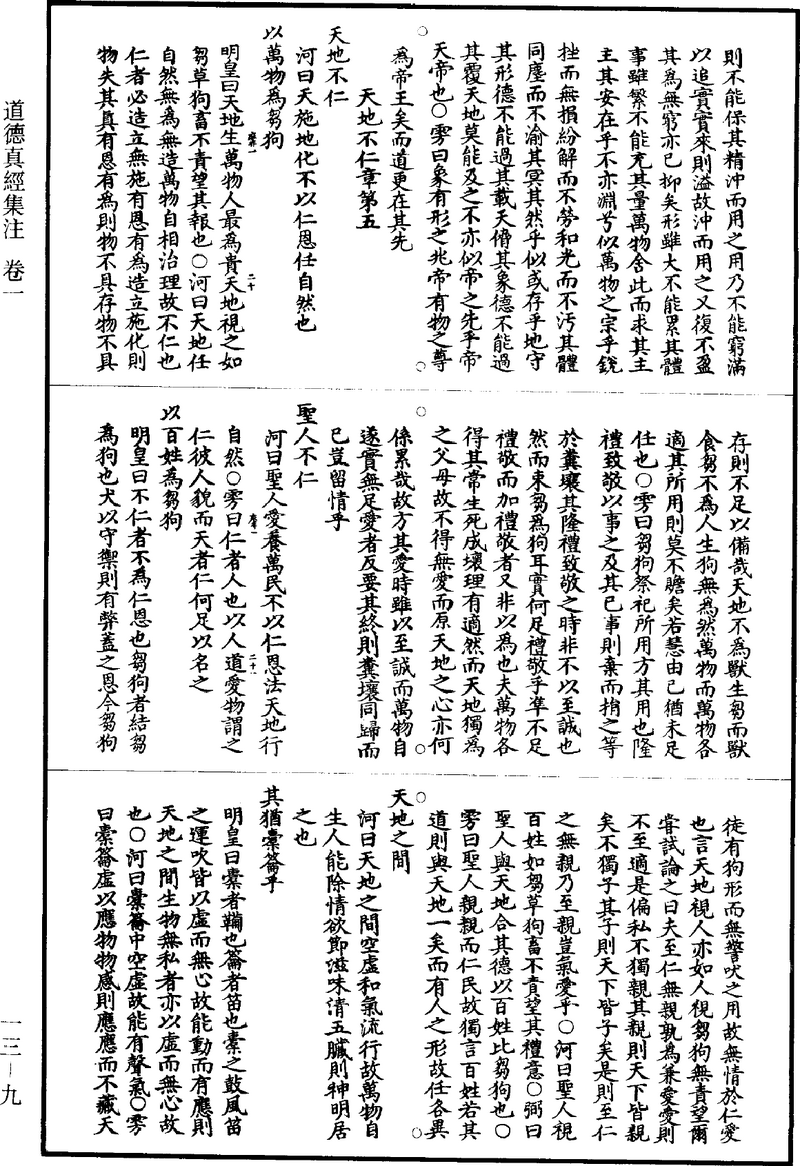 道德真經集注　卷一
一三－九
則不能保其精沖而用之用乃不能窮滿
以追實實來則溢故沖而用之又復不盈
其為無窮亦已抑矣形雖大不能累其體
事雖繁不能充其量萬物舍此而求其主
主其安在乎不亦淵兮似萬物之宗乎銳
挫而無損紛解而不勞和光而不污其體
同塵而不渝其冥其然乎似或存乎地守
其形德不能過其載天倄其象德不能過
其覆天地莫能及之不亦似帝之先乎帝
天帝也○雱曰象有形之兆帝有物之尊
為帝王矣而道更在其先
天地不仁章第五
天地不仁
河曰天施地化不以仁恩任自然也
以萬物為芻狗
明皇曰天地生萬物人最為貴天地視之如
芻草狗畜不責望其報也○河曰天地任
自然無為無造萬物自相治理故不仁也
仁者必造立無施有恩有為造立施化則
物失其真有恩有為則物不具存物不具
存則不足以備哉天地不為獸生芻而獸
食芻不為人生狗無為然萬物而萬物各
適其所用則莫不贍矣若慧由己猶未足
任也○雱曰芻狗祭祀所用方其用也隆
禮致敬以事之及其已事則棄而捐之等
於糞壤其隆禮致敬之時非不以至誠也
然而束芻為狗耳實何足禮敬乎準不足
禮敬而加禮敬者又非以為也夫萬物各
得其常生死成壞理有適然而天地獨為
之父母故不得無愛而原天地之心亦何
係累哉故方其愛時雖以至誠而萬物自
遂實無足愛者反要其終則糞壤同歸而
已豈留情乎
聖人不仁
河曰聖人愛養萬民不以仁恩法天地行
自然○雱曰仁者人也以人道愛物謂之
仁彼人貌而天者仁何足以名之
以百姓為芻狗
明皇曰不仁者不為仁恩也芻狗者結芻
為狗也犬以守禦則有弊蓋之恩今芻狗
徒有狗形而無警吠之用故無情於仁愛
也言天地視人亦如人視芻狗無責望爾
嘗試論之曰夫至仁無親孰為兼愛愛則
不至適是偏私不獨親其親則天下皆親
矣不獨子其子則天下皆子矣是則至仁
之無親乃至親豈氣愛乎○河曰聖人視
百姓如芻草狗畜不責望其禮意○弼曰
聖人與天地合其德以百姓比芻狗也○
雱曰聖人親親而仁民故獨言百姓若其
道則與天地一矣而有人之形故任各異
天地之間
河曰天地之間空虛和氣流行故萬物自
生人能除情欲節滋味清五臟則神明居
之也
其猶橐籥乎
明皇曰橐者鞴也籥者笛也橐之鼓風笛
之運吹皆以虛而無心故能動而有應則
天地之間生物無私者亦以虛而無心故
也○河曰橐籥中空虛故能有聲氣○雱
曰橐籥虛以應物物感則應應而不藏天